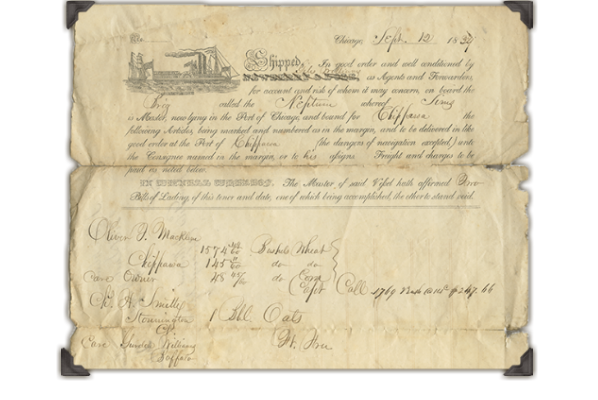 No.
Chicago, Sept. 12 183
Shipped, In good order and well conditioned by
as Agents and Forwarders,
for account and risk of whom it may concern, on board the
Brig called the Neptune whereof
is Master, now lying in the Port of Chicago, and bound for Chippawa the
following Articles, being marked and numbered as in the margin, and to be delivered in like
good order at the Port of Chippawa (the dangers of navigation excepted) unto
the Consignee named in the margin, or to his assigns. Freight and charges to be
paid as noted below.
IN WITNESS WHEREOF, The Master of said Vessel hath affirmed Two
Bills of Lading, of this tenor and date, one of which being accomplished, the other to stand void.
Oliver T. Macklem
1574 Bushels Wheat
Chippawa 145 do do
Care Owner 48 do Corn
Call 1769 Bush @ 14c $247.66
Stonnington 1 Bbl Oats
Care
Buffalo